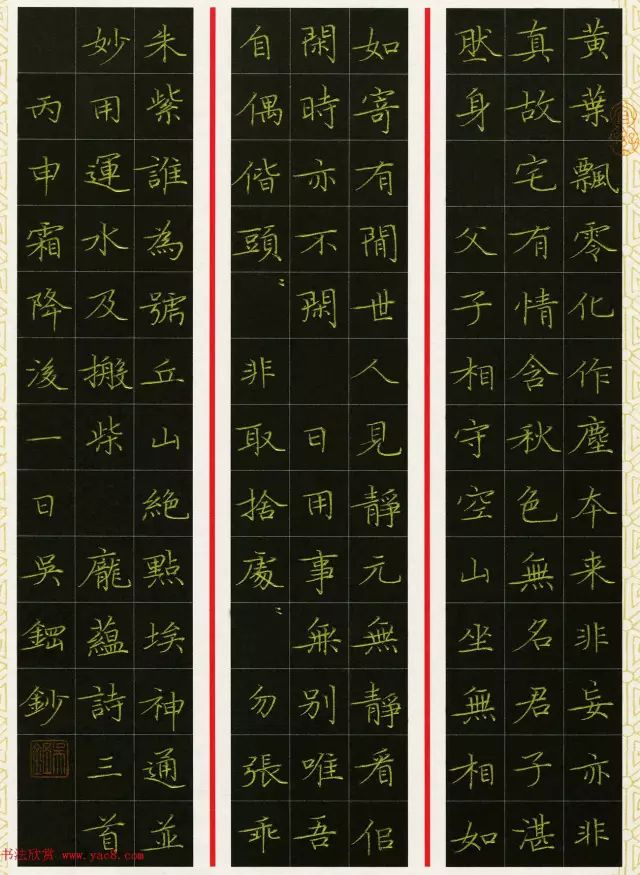 黄葉飄零化作塵本来非妄亦非
真故宅有情含秋色無名君子湛
肰身 父子相守空山坐無相如
如寄有間世人見靜元無靜看佀
閑時亦不閑 日用事無別唯吾
自偶偕頭〻 非取捨處〻 勿張乖
朱紫誰為號丘山絶點埃神通並
妙用運水及搬柴 龐藴詩三首
丙申霜降後一日吳鋼鈔
书法欣赏 www.yac8.com